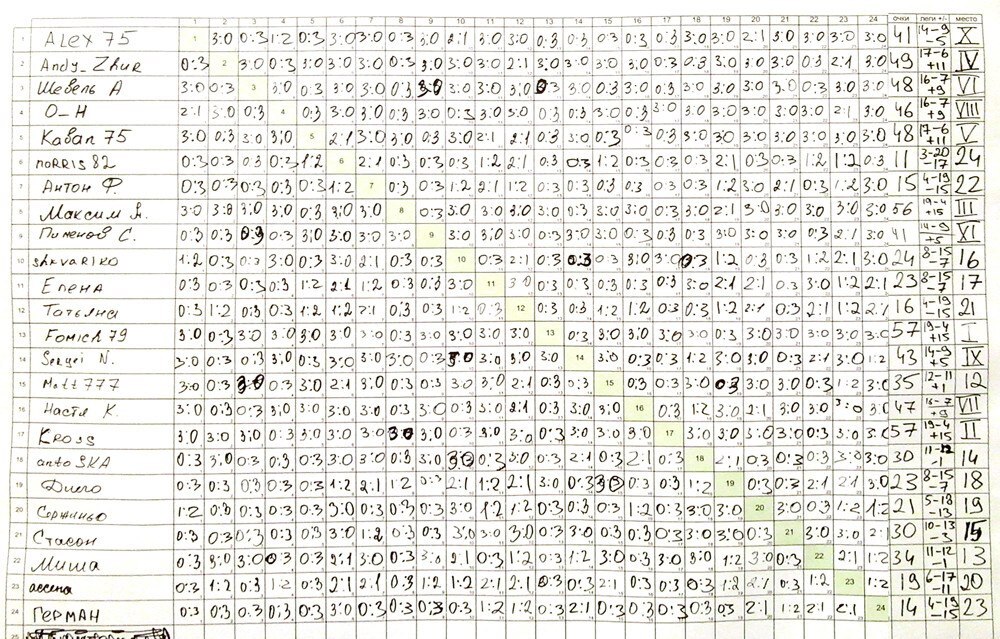 1 2 3 4 5 6 7 8 9 10 11 12 13 14 15 16 17 18 19 20 21 22 23 24 очки леги +/- место
1 ALex 75 1 3:0 0:3 1:2 0:3 3:0 3:0 0:3 3:0 2:1 3:0 3:0 0:3 0:3 0:3 0:3 0:3 3:0 3:0 2:1 3:0 3:0 3:0 3:0 41 14-9 -5 X
2 Andy_Zhur 0:3 2 3:0 0:3 3:0 3:0 3:0 0:3 3:0 3:0 3:0 2:1 3:0 3:0 3:0 0:3 0:3 0:3 3:0 3:0 3:0 3:0 2:1 3:0 49 17-6 +11 IV
3 Шевель А 3:0 0:3 3 3:0 0:3 3:0 3:0 0:3 3:0 3:0 3:0 3:0 0:3 3:0 0:3 3:0 0:3 3:0 3:0 3:0 3:0 0:3 3:0 3:0 48 16-7 +9 VI
4 O_H 2:1 3:0 0:3 4 0:3 3:0 3:0 0:3 3:0 0:3 3:0 3:0 0:3 3:0 3:0 0:3 3:0 0:3 3:0 3:0 3:0 3:0 2:1 3:0 46 16-7 +9 VIII
5 Кабан 75 3:0 0:3 3:0 3:0 5 2:1 3:0 3:0 0:3 3:0 2:1 2:1 0:3 3:0 0:3 0:3 0:3 3:0 3:0 3:0 3:0 3:0 3:0 3:0 48 17-6 +11 V
6 noRRis 82 0:3 0:3 0:3 0:3 1:2 6 2:1 0:3 0:3 0:3 1:2 2:1 0:3 0:3 1:2 0:3 0:3 0:3 2:1 0:3 0:3 1:2 1:2 0:3 11 3-20 -17 24
7 Антон Ф. 0:3 0:3 0:3 0:3 0:3 1:2 7 0:3 0:3 1:2 2:1 1:2 0:3 0:3 0:3 0:3 0:3 0:3 1:2 3:0 2:1 0:3 1:2 3:0 15 4-19 -15 22
8 Максим Я. 3:0 3:0 3:0 3:0 0:3 3:0 3:0 8 0:3 3:0 3:0 3:0 3:0 0:3 3:0 3:0 0:3 3:0 2:1 3:0 3:0 3:0 3:0 3:0 56 19-4 +15 III
9 Пименов С. 0:3 0:3 0:3 0:3 3:0 3:0 3:0 3:0 9 3:0 3:0 3:0 0:3 3:0 3:0 0:3 0:3 0:3 3:0 3:0 3:0 0:3 2:1 3:0 41 14-9 +5 XI
10 shkvaRIKO 1:2 0:3 0:3 3:0 0:3 3:0 2:1 0:3 0:3 10 0:3 2:1 0:3 0:3 0:3 3:0 3:0 0:3 1:2 0:3 0:3 1:2 2:1 3:0 24 8-15 -7 16
11 Елена 0:3 0:3 0:3 0:3 1:2 2:1 1:2 0:3 0:3 3:0 11 3:0 0:3 0:3 0:3 0:3 0:3 3:0 2:1 2:1 0:3 3:0 1:2 2:1 23 8-15 -7 17
12 Татьяна 0:3 1:2 0:3 0:3 1:2 1:2 2:1 0:3 0:3 1:2 0:3 12 0:3 0:3 1:2 1:2 0:3 0:3 1:2 2:1 0:3 2:1 1:2 2:1 16 4-19 -15 21
13 Fomich 79 3:0 0:3 3:0 3:0 3:0 3:0 3:0 0:3 3:0 3:0 3:0 3:0 13 0:3 3:0 3:0 3:0 3:0 0:3 3:0 3:0 3:0 3:0 3:0 57 19-4 +15 I
14 Sergei N. 3:0 0:3 0:3 0:3 0:3 3:0 3:0 3:0 0:3 3:0 3:0 3:0 3:0 14 3:0 0:3 0:3 1:2 3:0 3:0 0:3 2:1 3:0 1:2 43 14-9 +5 IX
15 Mott 777 3:0 0:3 3:0 0:3 3:0 2:1 3:0 0:3 0:3 3:0 3:0 2:1 0:3 0:3 15 0:3 0:3 3:0 0:3 3:0 2:1 0:3 1:2 3:0 35 12-11 +1 12
16 Настя К. 3:0 3:0 0:3 3:0 3:0 3:0 3:0 0:3 3:0 0:3 3:0 2:1 0:3 3:0 3:0 16 0:3 1:2 3:0 2:1 3:0 3:0 3:0 0:3 47 16-7 +9 VII
17 Kross 3:0 3:0 3:0 0:3 3:0 3:0 3:0 3:0 3:0 0:3 3:0 3:0 0:3 3:0 3:0 3:0 17 3:0 3:0 3:0 3:0 0:3 3:0 3:0 57 19-4 +15 II
18 antoSKA 0:3 3:0 0:3 3:0 0:3 3:0 3:0 0:3 3:0 3:0 0:3 3:0 0:3 2:1 0:3 2:1 0:3 18 2:1 0:3 0:3 0:3 3:0 3:0 30 11-12 -1 14
19 Диего 0:3 0:3 0:3 0:3 0:3 1:2 2:1 1:2 0:3 2:1 1:2 2:1 3:0 0:3 3:0 0:3 0:3 1:2 19 0:3 0:3 2:1 2:1 3:0 23 8-15 -7 18
20 Сержиньо 1:2 0:3 0:3 0:3 0:3 3:0 0:3 0:3 0:3 3:0 1:2 1:2 0:3 0:3 0:3 1:2 0:3 3:0 3:0 20 3:0 0:3 1:2 1:2 21 5-18 -13 19
21 Стасон 0:3 0:3 0:3 0:3 0:3 3:0 1:2 0:3 0:3 3:0 3:0 3:0 0:3 3:0 1:2 0:3 0:3 3:0 3:0 0:3 21 3:0 3:0 2:1 30 10-13 -3 15
22 Миша 0:3 0:3 3:0 0:3 0:3 2:1 3:0 0:3 0:3 2:1 0:3 1:2 0:3 1:2 3:0 0:3 3:0 3:0 1:2 3:0 0:3 22 2:1 1:2 34 11-12 -1 13
23 ассена 0:3 1:2 0:3 1:2 0:3 2:1 2:1 0:3 1:2 1:2 2:1 2:1 0:3 0:3 2:1 0:3 0:3 0:3 1:2 2:1 0:3 1:2 23 1:2 19 6-17 -11 20
24 ГЕРМАН 0:3 0:3 0:3 0:3 0:3 3:0 0:3 0:3 0:3 0:3 1:2 1:2 0:3 2:1 0:3 0:3 0:3 0:3 0:3 2:1 1:2 2:1 2:1 24 14 4-19 -15 23